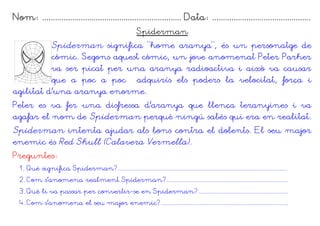 Nom: ................................................ Data: ..................................
Spiderman
Spiderman significa "home aranya", és un personatge de
còmic. Segons aquest còmic, un jove anomenat Peter Parker
va ser picat per una aranya radioactiva i això va causar
que a poc a poc adquirís els poders la velocitat, força i
agilitat d'una aranya enorme.
Peter es va fer una disfressa d'aranya que llença teranyines i va
agafar el nom de Spiderman perquè ningú sabés qui era en realitat.
Spiderman intenta ajudar als bons contra el dolents. El seu major
enemic és Red Skull (Calavera Vermella).
Preguntes:
1. Què significa Spiderman? ................................................................
2. Com s'anomena realment Spiderman? ..............................................
3. Què li va passar per convertir-se en Spiderman? ..................................
4. Com s'anomena el seu major enemic? ................................................